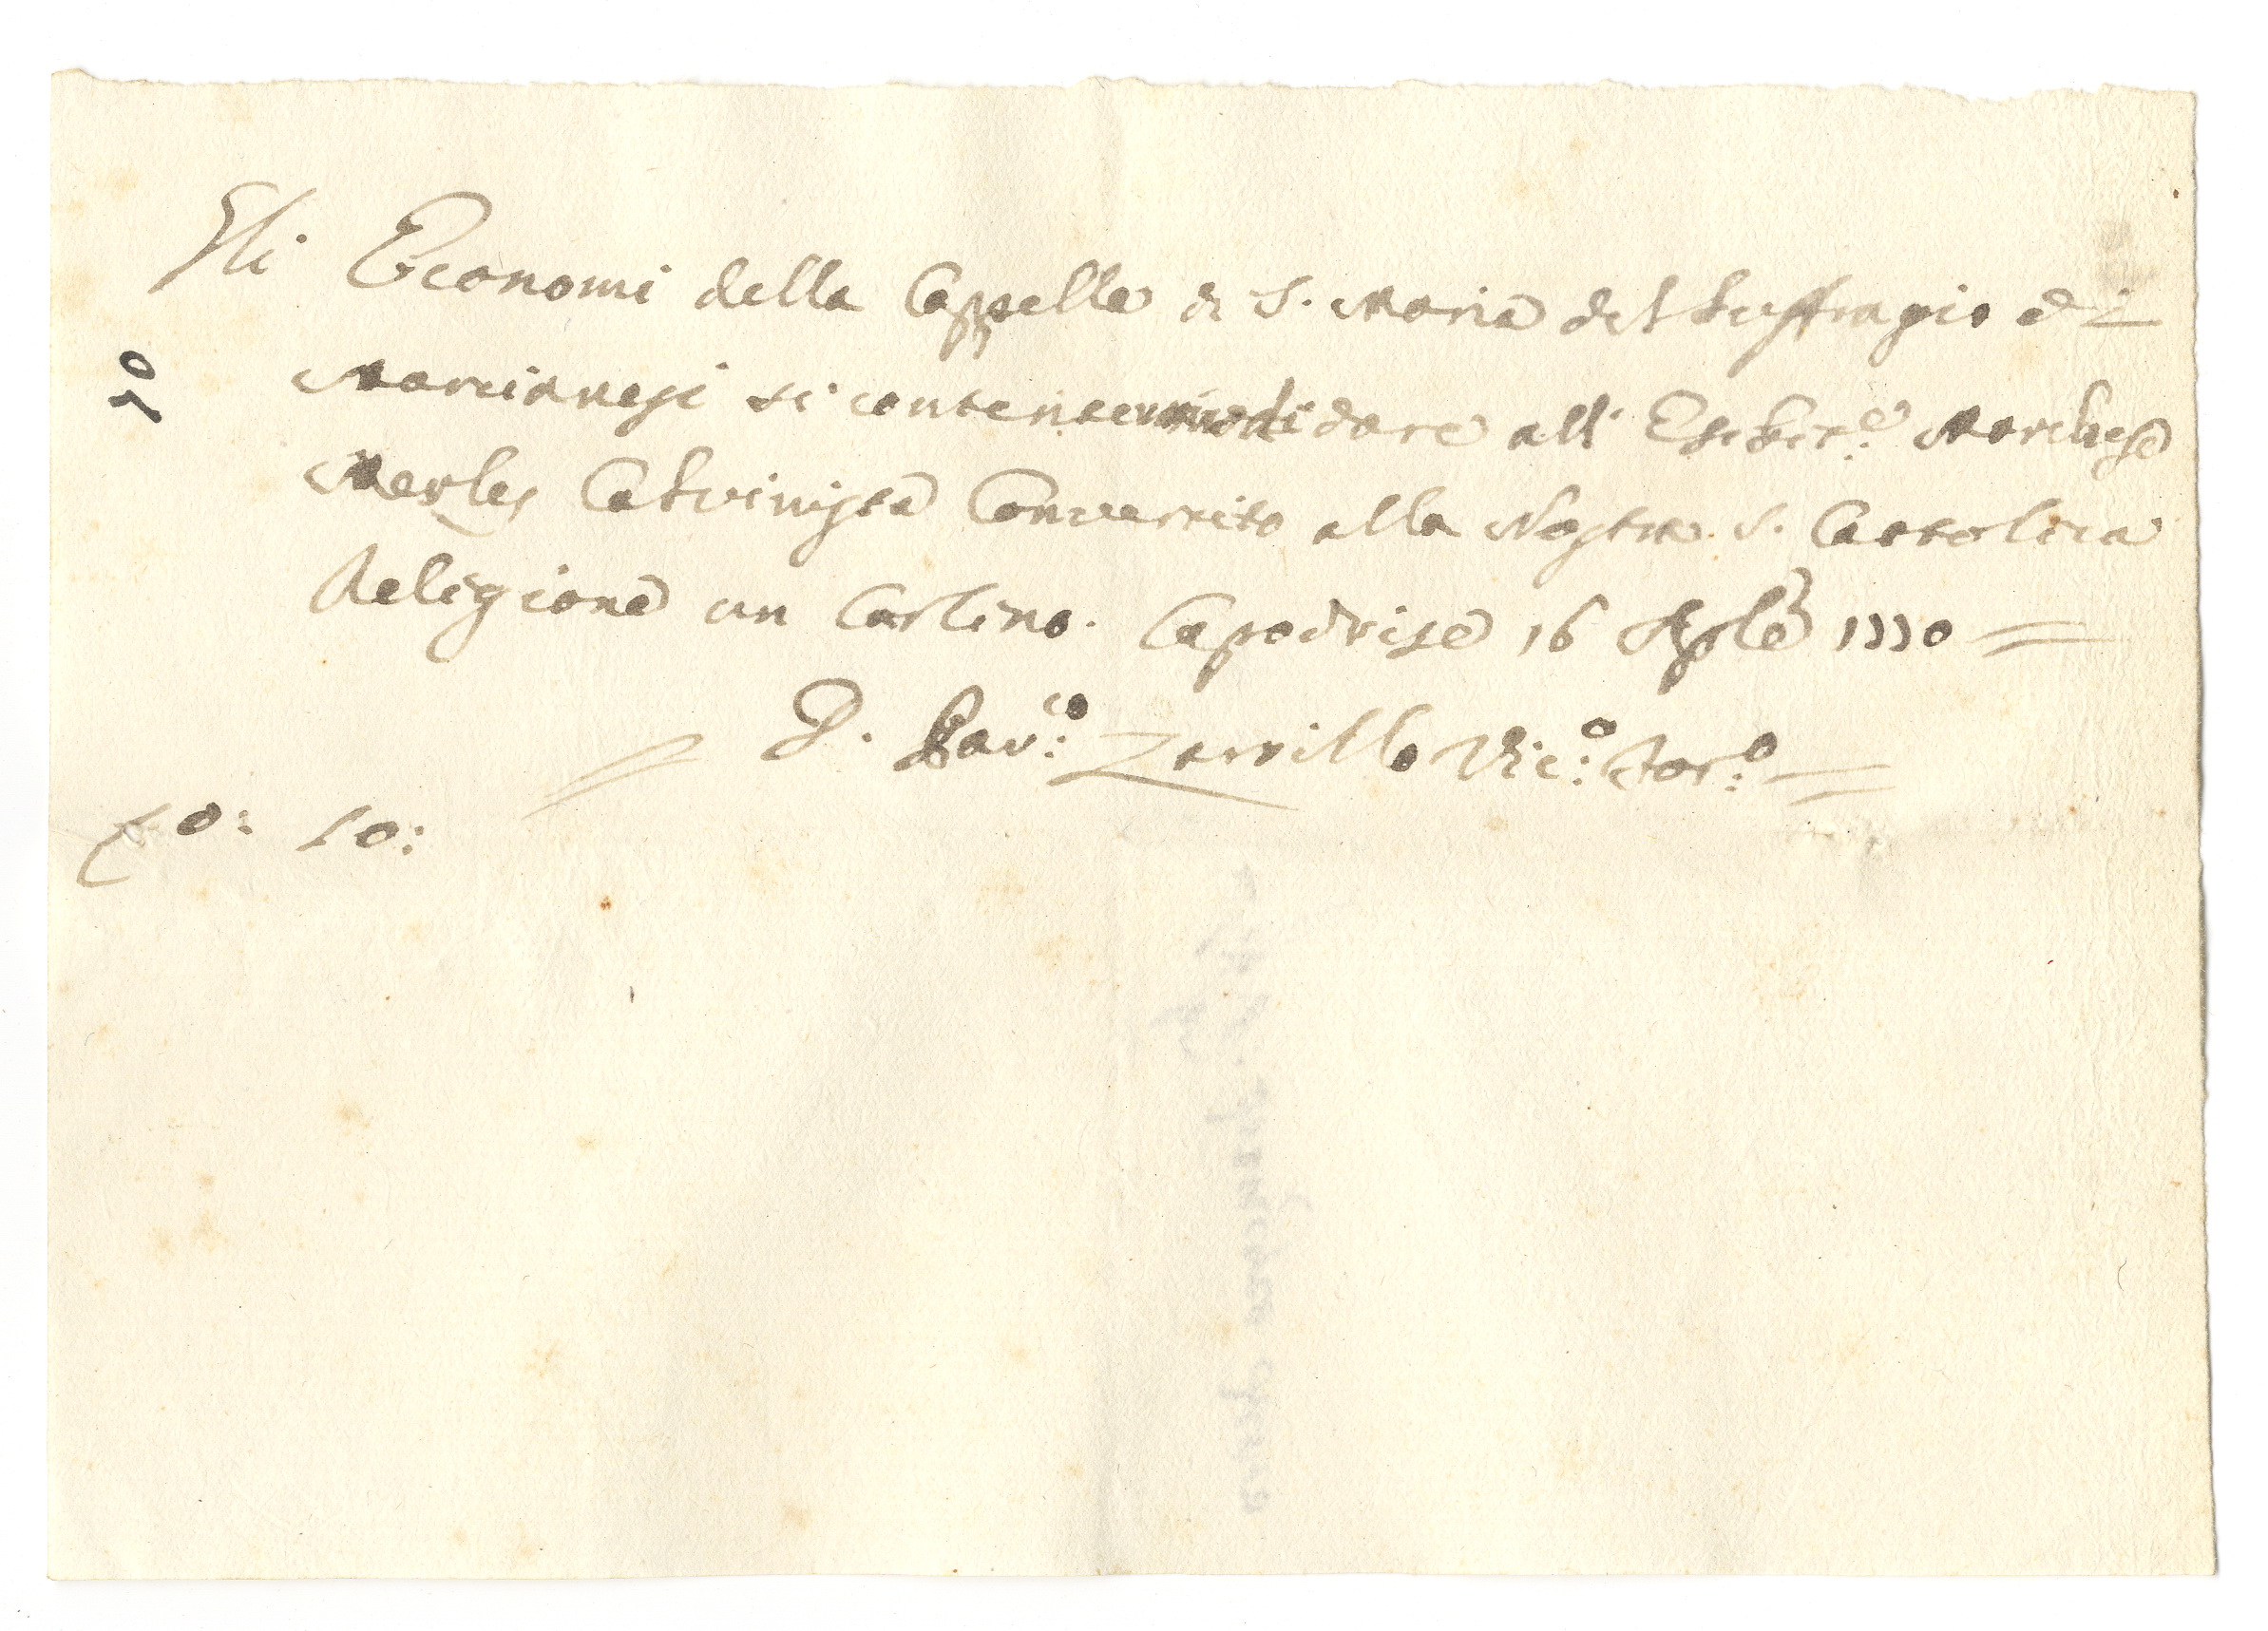 Gli Economi della Cappella di S. Maria del Suffragio di
Marcianesi si contenteranno di dare all' Esibit.e Marchese
Merles Calvinista Convertito alla Nostra S. Cattolica
Religione un Carlino. Capodrise 16 Aple 1770 =
= D. Sav.co Zarrillo Vic.o For.o =
0: 10: